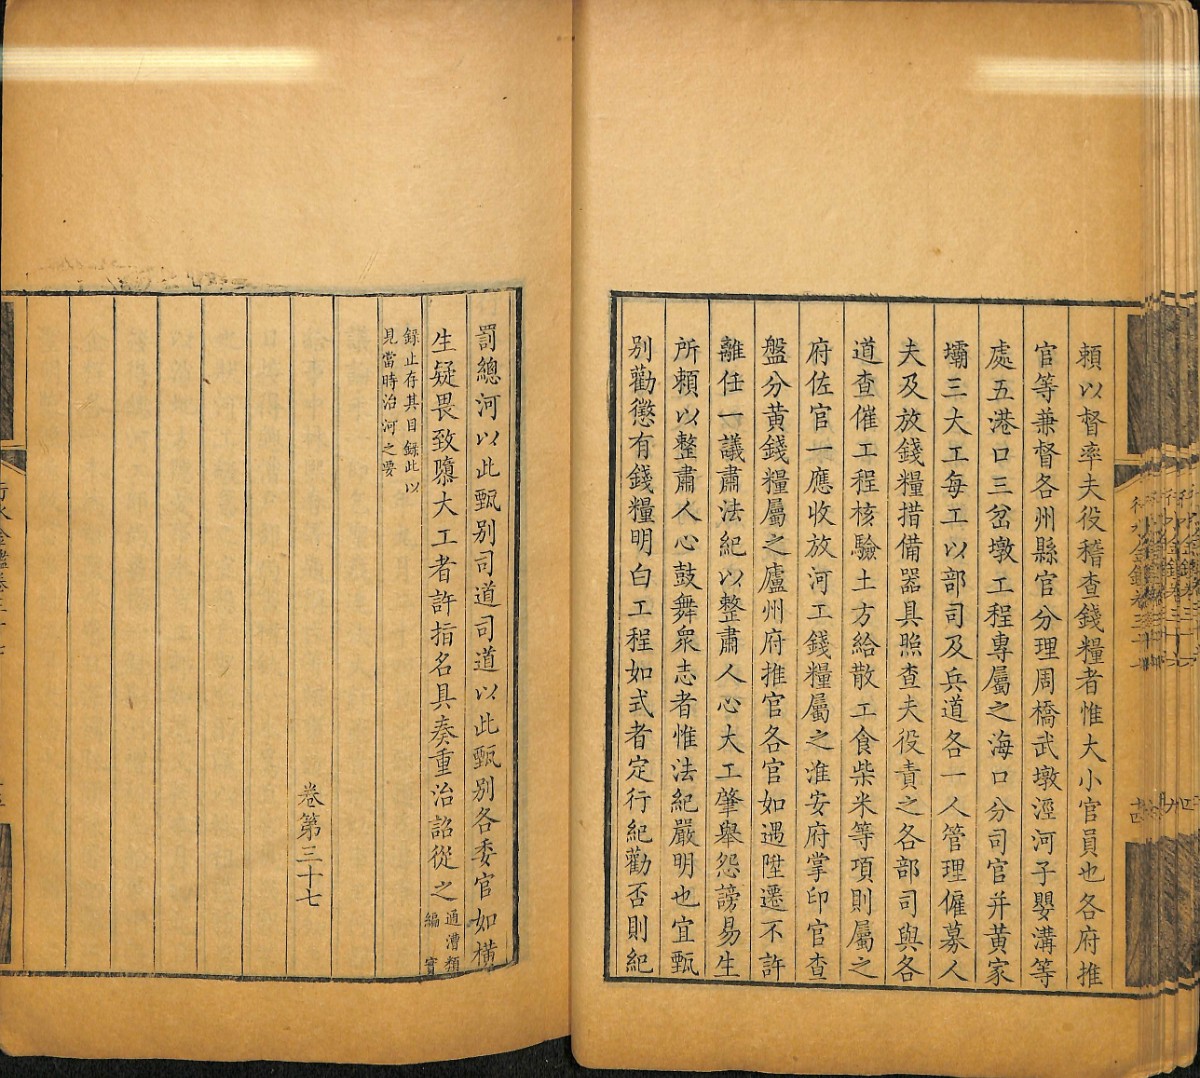 頼以督率夫役稽查錢糧者惟大小官員也各府推
官等兼督各州縣官分理周橋武墩涇河子嬰溝等
處五港口三岔墩工程專屬之海口分司官并黃家
壩三大工每工以部司及兵道各一人管理僱募人
夫及放錢糧措備器具照查夫役責之各部司與各
道查催工程核驗土方給散工食柴米等項則屬之
府佐官一應收放河工錢糧屬之淮安府掌印官查
盤分黃錢糧屬之廬州府推官各官如遇陞遷不許
離任一議肅法紀以整肅人心大工肇舉怨謗易生
所頼以整肅人心鼓舞衆志者惟法紀嚴明也宜甄
別勸懲有錢糧明白工程如式者定行紀勸否則紀
罰總河以此甄別司道司道以此甄別各委官如橫
生疑畏致隳大工者許指名具奏重治詔從之
通漕類
編 實
錄止存其目錄此以
見當時治河之要
卷第三十七
行水金鑑卷三十七